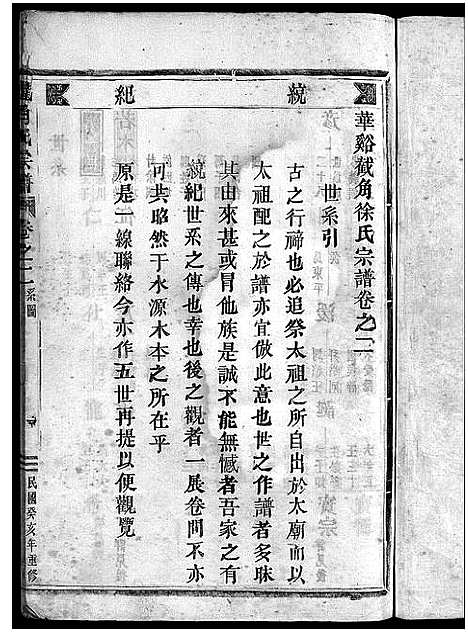 華谿截角徐氏宗譜卷之二
統
紀
世系引
古之行禘也必追祭太祖之所自出於太廟而以
太祖配之於譜亦宜倣此意也世之作譜者多昧
其由來甚或冒他族是誠不能無憾者吾家之有
統紀世系之傳也幸也後之觀者一展卷問不亦
可共昭然于水源木本之所在乎
原是一線聯絡今亦作五世再提以便觀覽
氏宗譜
卷之二
系圖
民國癸亥年重修